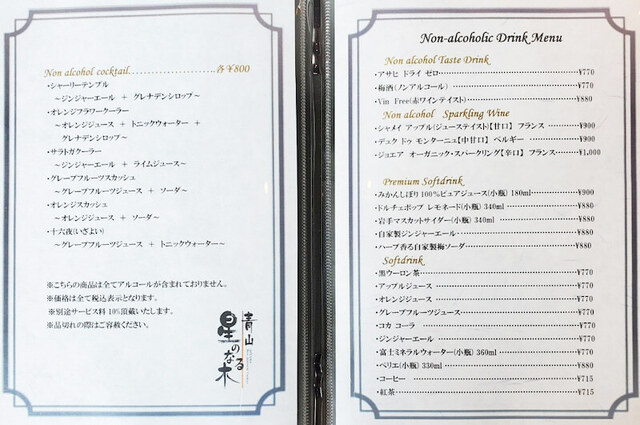 Non alcohol cocktail......................各￥800
・シャーリーテンプル
～ジンジャーエール ＋ グレナデンシロップ～
・オレンジフラワークーラー
～オレンジジュース ＋ トニックウォーター ＋
グレナデンシロップ～
・サラトガクーラー
～ジンジャーエール ＋ ライムジュース～
・グレープフルーツスカッシュ
～グレープフルーツジュース ＋ ソーダ～
・オレンジスカッシュ
～オレンジジュース ＋ ソーダ～
・十六夜(いざよい)
～グレープフルーツジュース ＋ トニックウォーター～
※こちらの商品は全てアルコールが含まれておりません。
※価格は全て税込表示となります。
※別途サービス料 10%頂戴いたします。
※品切れの際はご容赦ください。
青山
星のなる木
Non-alcoholic Drink Menu
Non alcohol Taste Drink
・アサヒ ドライ ゼロ……………………¥770
・梅酒(ノンアルコール)……………………¥770
・Vin Free(赤ワインテイスト)……………………¥880
Non alcohol Sparkling Wine
・シャメイ アップル(ジューステイスト)【甘口】 フランス ………¥900
・デュク ドゥ モンターニュ【中甘口】 ベルギー ………¥900
・ジョエア オーガニック・スパークリング【辛口】 フランス………¥1,000
Premium Softdrink
・みかんしぼり 100%ピュアジュース(小瓶) 180ml………¥900
・ドルチェポップ レモネード(小瓶) 340ml ………¥880
・岩手マスカットサイダー(小瓶) 340ml ………¥880
・自家製ジンジャーエール………¥880
・ハーブ香る自家製梅ソーダ………¥880
Softdrink
・黒ウーロン茶……………………¥770
・アップルジュース ……………………¥770
・オレンジジュース ……………………¥770
・グレープフルーツジュース……………………¥770
・コカ コーラ ……………………¥770
・ジンジャーエール ……………………¥770
・富士ミネラルウォーター(小瓶) 360ml ………¥770
・ペリエ(小瓶) 330ml……………………¥880
・コーヒー ……………………¥715
・紅茶……………………¥715